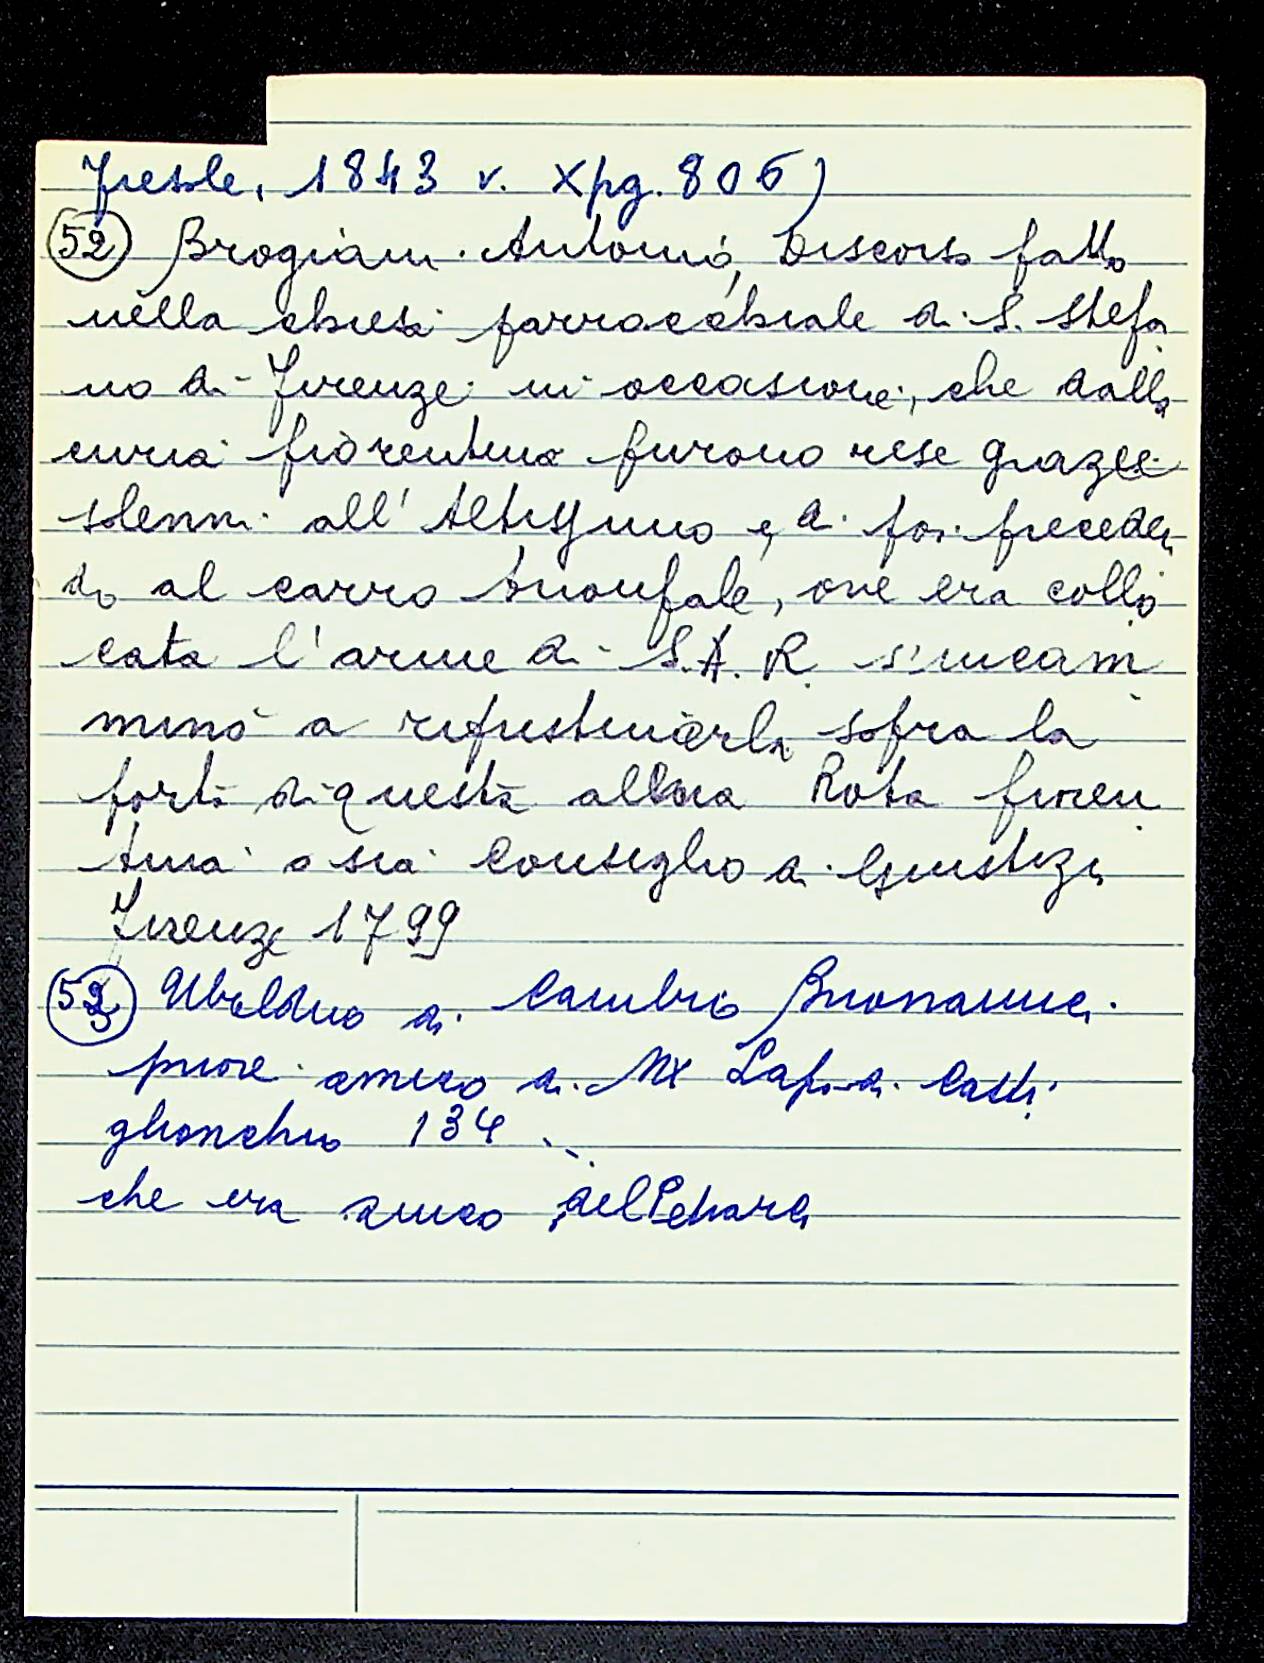 Fiesole, 1843 v. X pg. 806)
52 Brogiani Antonio, Discorso fatto
nella chiesa parrocchiale di S. Stefa
no di Firenze in occasione, che dalla
curia fiorentina furono rese grazie
solenni all'Altissimo e di poi preceden
do al carro trionfale, ove era collo
cata l'arme di S.A.R. s'incam
minò a ripristinarla sopra la
porta di questa allora Rota fioren
tina o sia Consiglio di Giustizia
Firenze 1799
53 Ubaldino di Cambio Buonamici
priore amico di Lapo di Casti
glionchio 134
che era amico del Petrarca